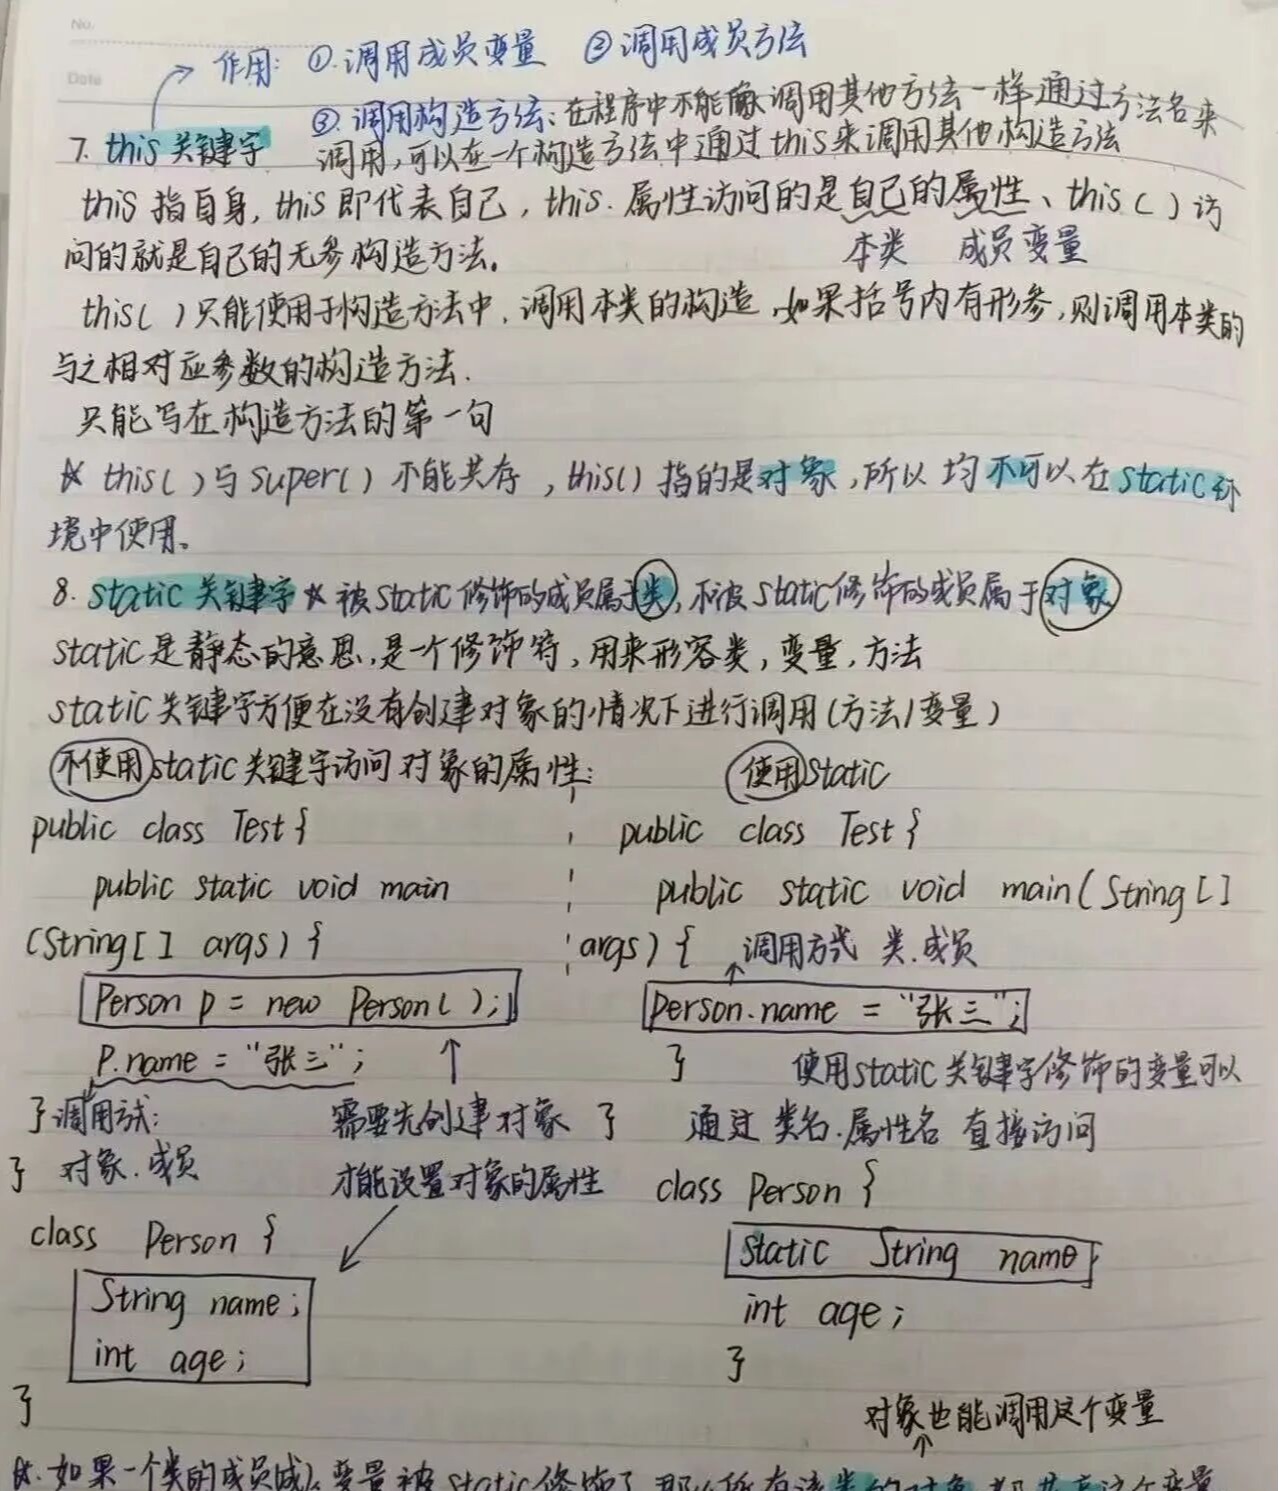 No.
Date
作用: ①.调用成员变量 ②调用成员方法
③.调用构造方法:在程序中不能像调用其他方法一样通过方法名来
7. this关键字 调用,可以在一个构造方法中通过this来调用其他构造方法
this指自身,this即代表自己,this.属性访问的是自己的属性、this()访
本类 成员变量
问的就是自己的无参构造方法。
this()只能使用于构造方法中,调用本类的构造,如果括号内有形参,则调用本类的
与之相对应参数的构造方法.
只能写在构造方法的第一句
☆ this()与super()不能共存,this()指的是对象,所以均不可以在static环
境中使用。
8. static关键字☆被static修饰的成员属于类,不被static修饰的成员属于对象
static是静态的意思,是一个修饰符,用来形容类,变量,方法
static关键字方便在没有创建对象的情况下进行调用(方法/变量)
不使用static关键字访问对象的属性:
public class Test{
public static void main
(String[] args){
Person p = new Person();
P.name = "张三";
}调用方式:
} 对象.成员
需要先创建对象
才能设置对象的属性
class Person {
String name;
int age;
}
使用static
public class Test{
public static void main(String[]
args){ 调用方式 类.成员
person.name = "张三";
}
使用static关键字修饰的变量可以
} 通过 类名.属性名 直接访问
class Person {
static String name
int age;
}
对象也能调用这个变量
☆.如果一个类的成员变量被static修饰了,那么所有该类的对象都共享这个变量